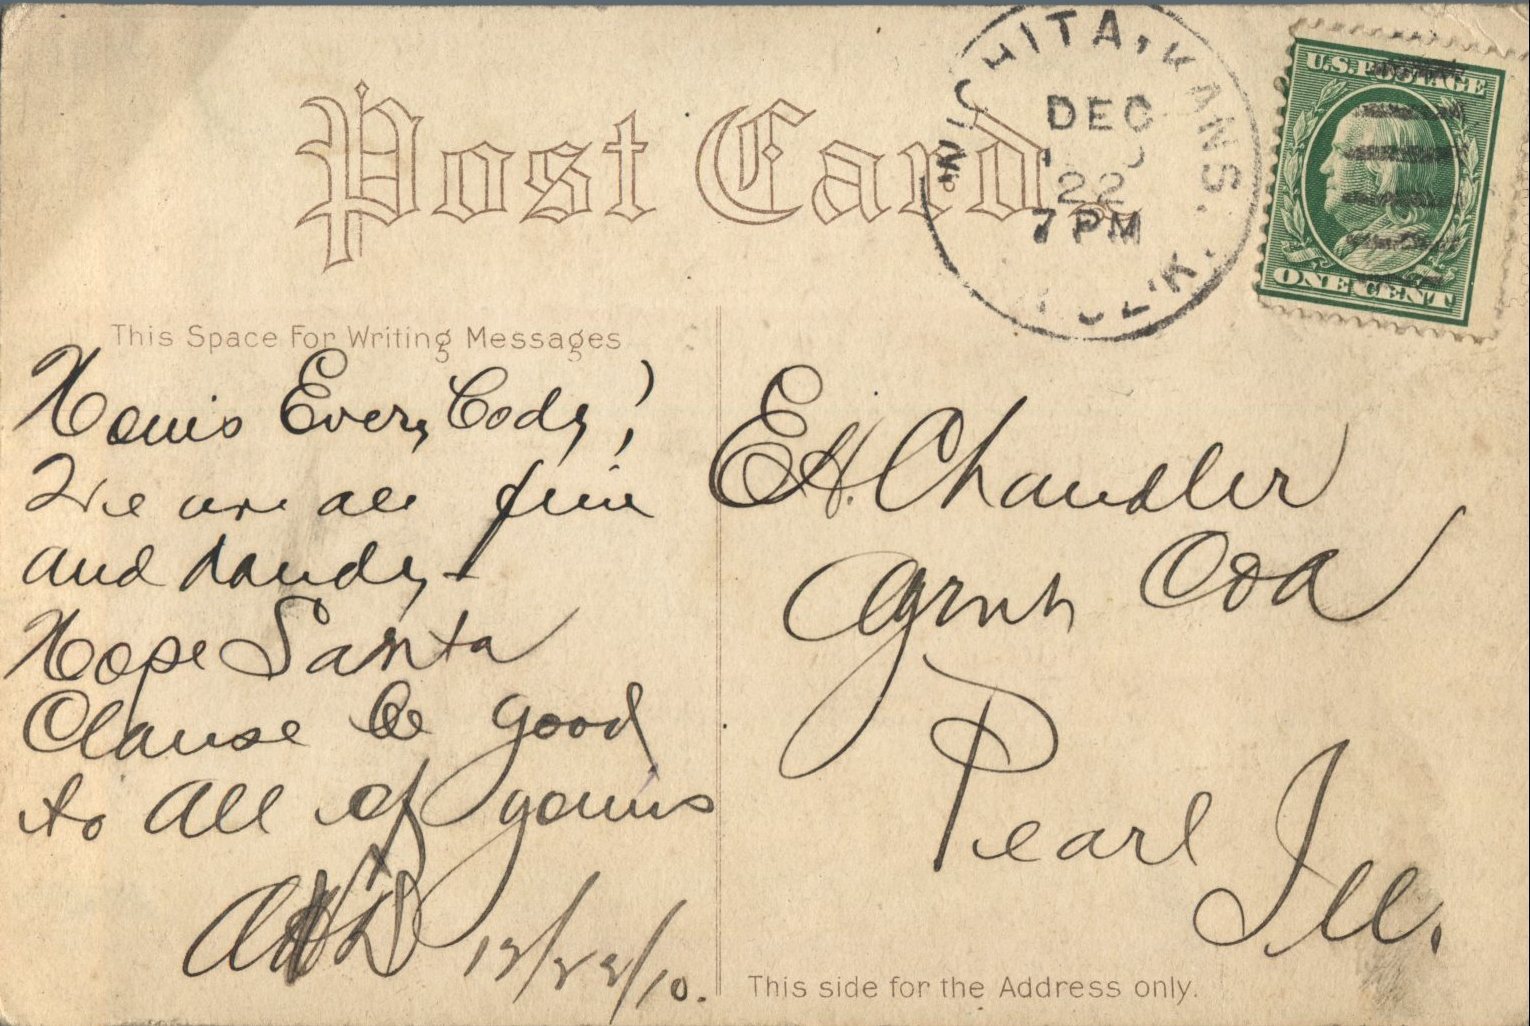 Post Card
WICHITA, KANS.
DEC
22
7 PM
U.S. POSTAGE
ONE CENT
This Space For Writing Messages
Howis Every Body!
We are all fine
and dandy
Hope Santa
Clause be good
to All of youns
12/22/10.
E.H. Chandler
Pearl Ill.
This side for the Address only.